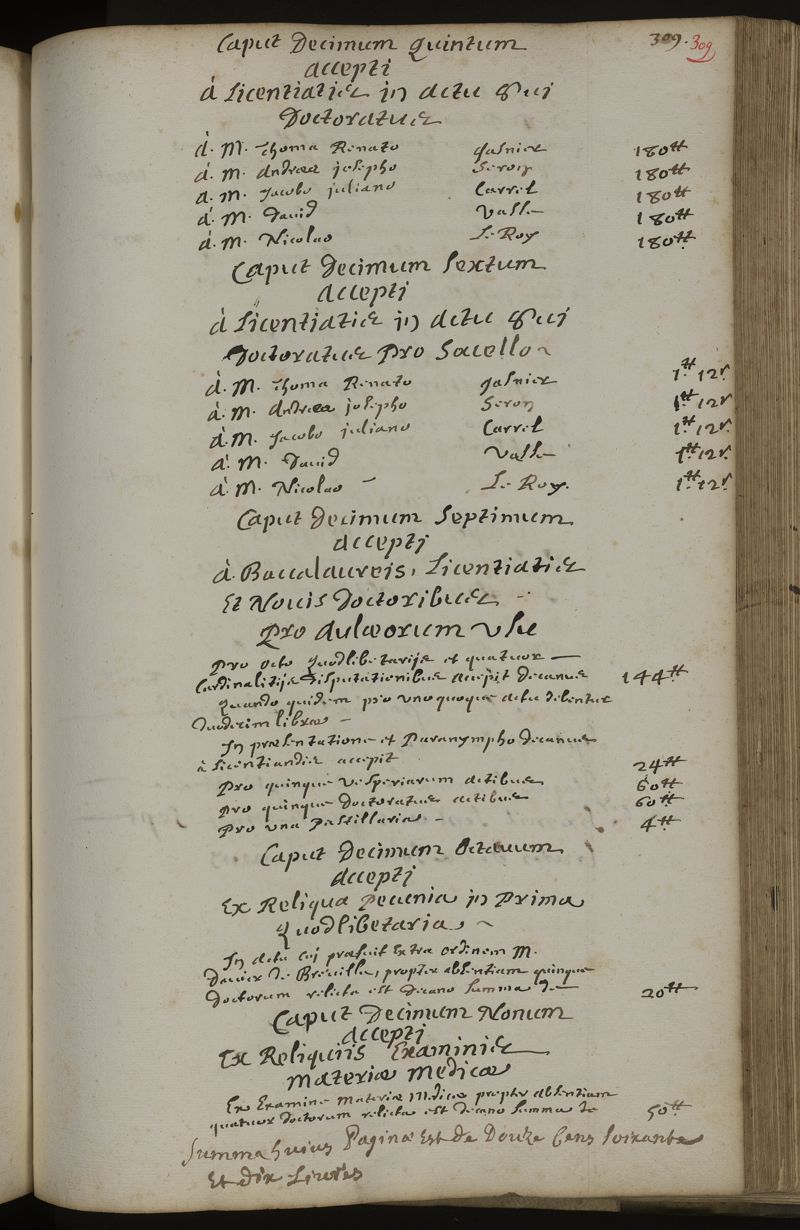 309. 309
Caput Decimum Quintum
accepti
à Licentiatis in actu sui
Doctoratus
à. M. Thoma Renato Gasnier 180tt
à. M. Andrea josepho Seron 180tt
a. M. Jacobo juliano Carrel 180tt
à. M. David Valle 180tt
à. M. Nicolao Le Roy 180tt
Caput Decimum Sextum
accepti
à Licentiatis in actu sui
Doctoratus Pro Sacello
à. M. Thoma Renato gasnier 1tt 12s
à. M. Andrea josepho Seron 1tt 12s
à. M. Jacobo juliano Carrel 1tt 12s.
à. M. David Valle 1tt 12s.
à. M. Nicolao Le Roy. 1tt 12s
Caput Decimum Septimum
accepti
à. Baccalaureis, Licentiatis
Et Novis Doctoribus
Pro Aulæorum usu
Pro octo quodlibetarijs et quatuor
Cardinalitijs Disputationibus accepit decanus 144tt
quando quidem pro unoquoque actu debentur
duodecim libræ
In præsentatione et Paranympho decanus
à licentiandis accepit 24tt
Pro quinque vesperiarum actibus 60tt
pro quinque doctoratus actibus 60tt
pro una Pastillaria 4tt
Caput Decimum Octauum
accepti
Ex Reliqua pecunia in Prima
Quodlibetaria
In actu cui præfuit Extra ordinem M.
de Breuille, propter absentiam quinque
doctorum relicta est Decano summa de 20tt
Caput Decimum Nonum
accepti
Ex Reliquiis Examinis
Materiæ Medicæ
Ex Examine Materiæ Medicæ propter absentiam
quatuor doctorum relicta est decano summa de 50tt
Summa huius Paginæ Est de Douze Cens soixante
Et dix Livres